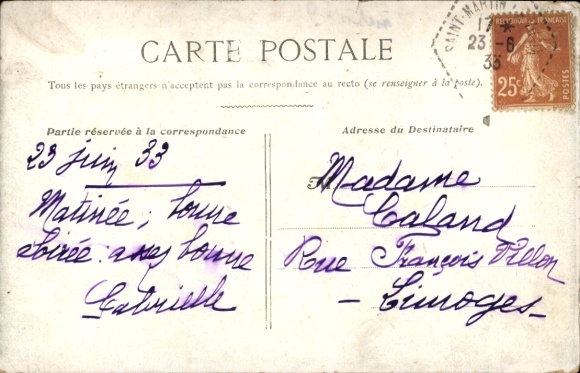 CARTE POSTALE
Tous les pays étrangers n'acceptent pas la correspondance au recto (se renseigner à la poste).
SAINT-MARTIN
17 *
23 -6
33
REPUBLIQUE FRANÇAISE
25c
POSTES
Partie réservée à la correspondance
Adresse du Destinataire
23 juin 33
Matinée; bonne
Soirée: assez bonne
Gabrielle
Madame
Caland
Rue François
- Limoges -